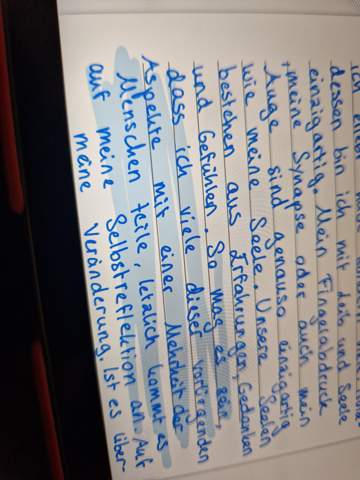 dessen bin ich mit Leib und Seele
einzigartig. Mein Fingerabdruck
meine Synapse oder auch mein
Auge sind genauso einzigartig
wie meine Seele. Unsere Seelen
bestehen aus Erfahrungen, Gedanken
und Gefühlen. So mag es sein,
dass ich viele dieser vorliegenden
Aspekte mit einer Mehrheit der
Menschen teile, letzlich kommt es
auf meine Selbstreflektion an. Auf
meine Veränderung. Ist es über-